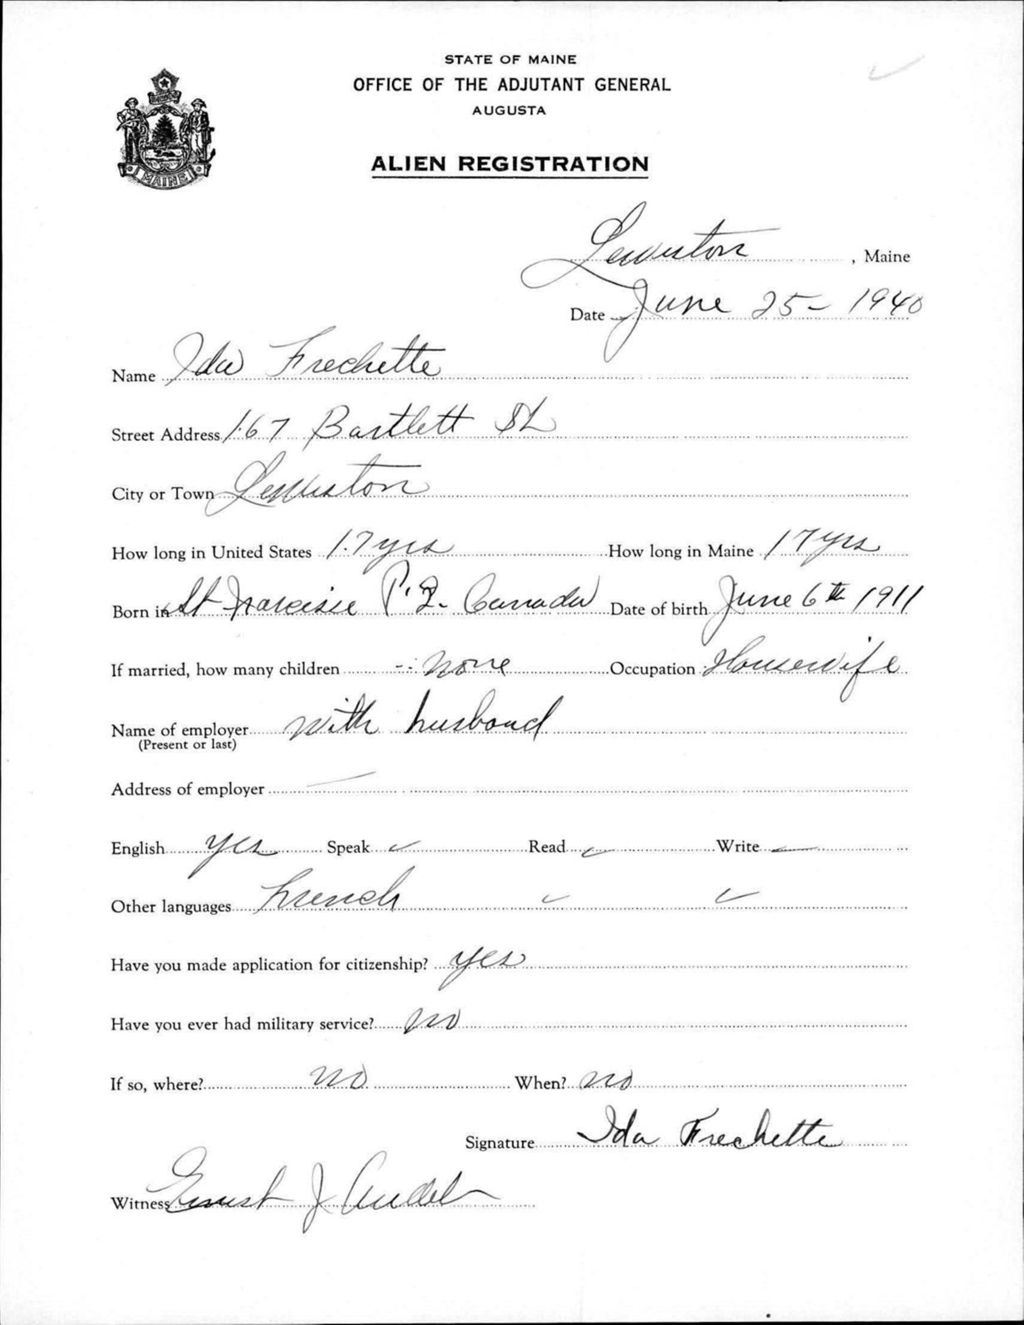 STATE OF MAINE
OFFICE OF THE ADJUTANT GENERAL
AUGUSTA
MAINE
ALIEN REGISTRATION
Lewiston, Maine
Date June 25- 1940
Name Ida Frechette
Street Address 167 Bartlett St
City or Town Lewiston
How long in United States 17 yrs How long in Maine 17 yrs
Born in St Narcisse P.Q. Canada Date of birth June 6th 1911
If married, how many children -- None Occupation Housewife
Name of employer with husband
(Present or last)
Address of employer —
English yes Speak ✓ Read ✓ Write ✓
Other languages French ✓ ✓
Have you made application for citizenship? yes
Have you ever had military service? no
If so, where? no When? no
Signature Ida Frechette
Witness Ernest J